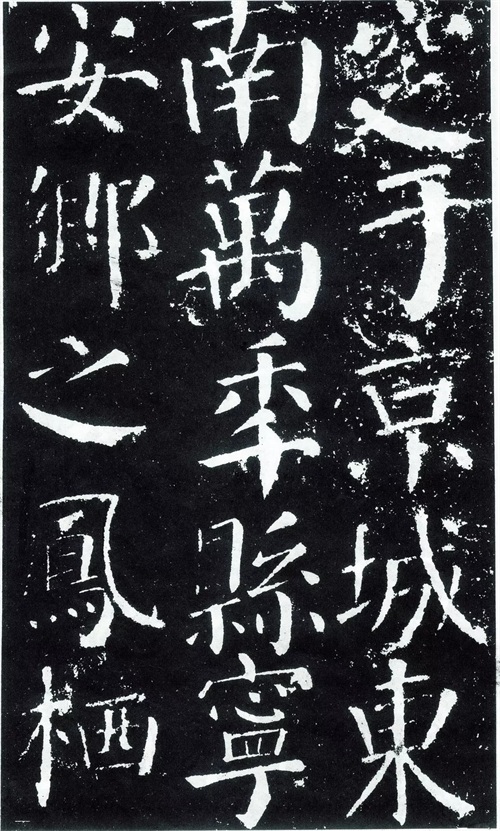 于京城東
南萬秊縣寧
安鄉之鳳栖